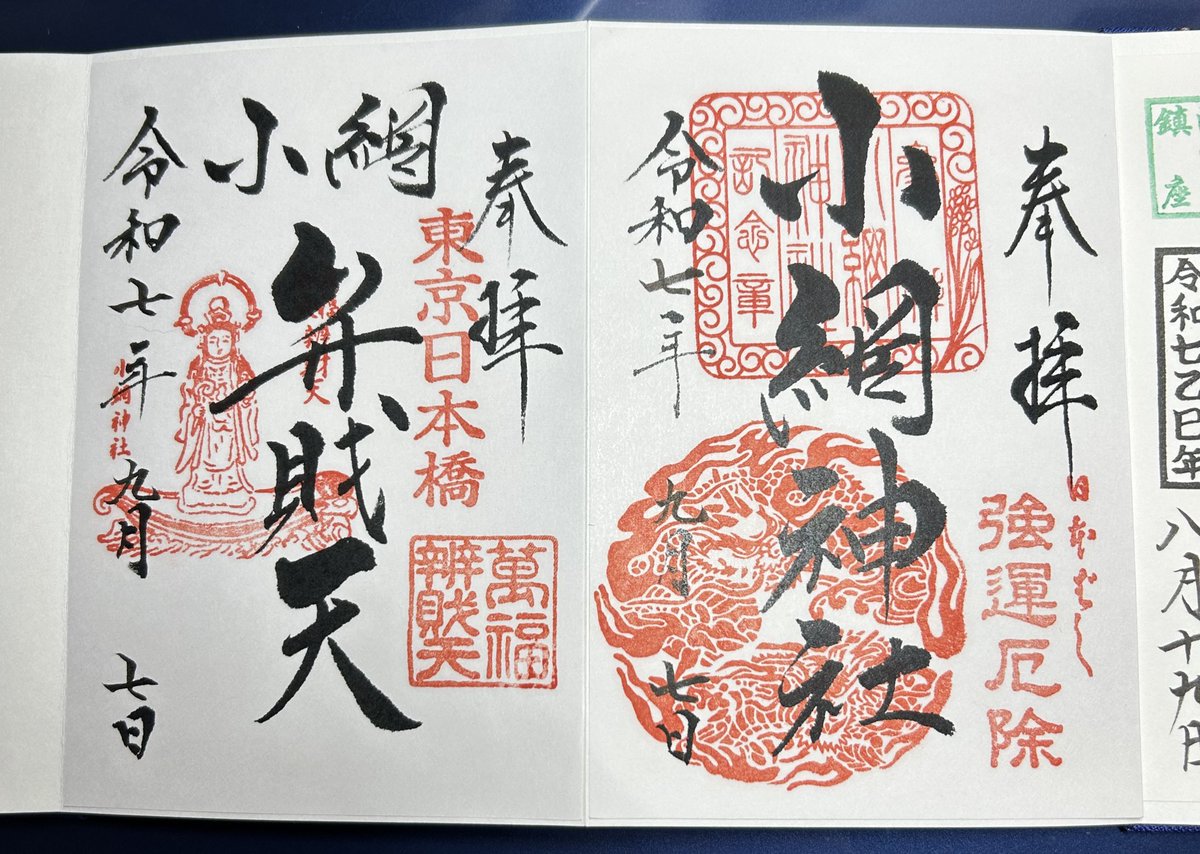 鎮
座
令和七乙巳年
八月十九日
奉拝
日本ばし
強運厄除
小網神社
令和七年
九月
七日
奉拝
東京日本橋
萬福
辨財天
小網
弁財天
小網神社
令和七年
九月
七日